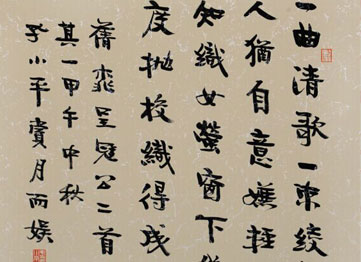 一曲清歌一束綾
人猶自意嫌輕
知織女螢窗下
度拋梭織得成
蒨桃呈寇公二首
其一甲午中秋
小平賞月而娛